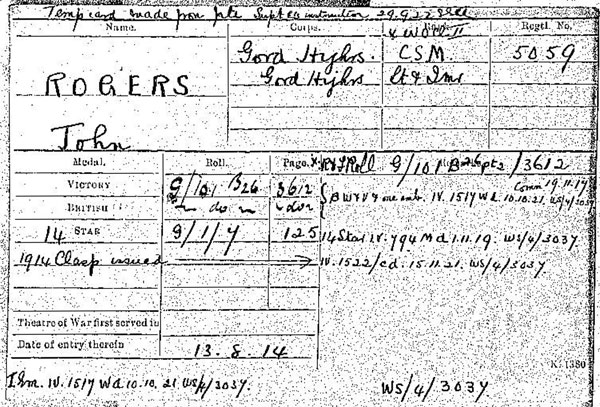 Temp card made from file Supt EG instruction 29.9.22
Name. Corps. Rank. Regtl. No.
& W.O.Cl.II
ROGERS Gord Highrs. C.S.M. 5059
Gord Highrs Lt &
John
Medal. Roll. Page.
VICTORY G/101 B26 3612
BRITISH do do
14 STAR G/1/7 125
1914 Clasp issued
Roll G/101 B /3612
Comm 19.11.17
BW & V one emb. IV. 1517 Wd. 10.10.21. WS/4/3037
14 Star IV. 794 Md 1.11.19. WS/4/3037
IV. 1522/cd. 15.11.21. WS/4/3037.
Theatre of War first served in
Date of entry therein 13.8.14
K. 1380
Em. IV. 1517 Wd 10.10.21 WS/4/3037.
WS/4/3037